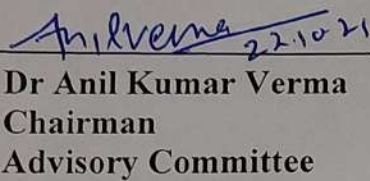 Anilverma
22.10.21
Dr Anil Kumar Verma
Chairman
Advisory Committee